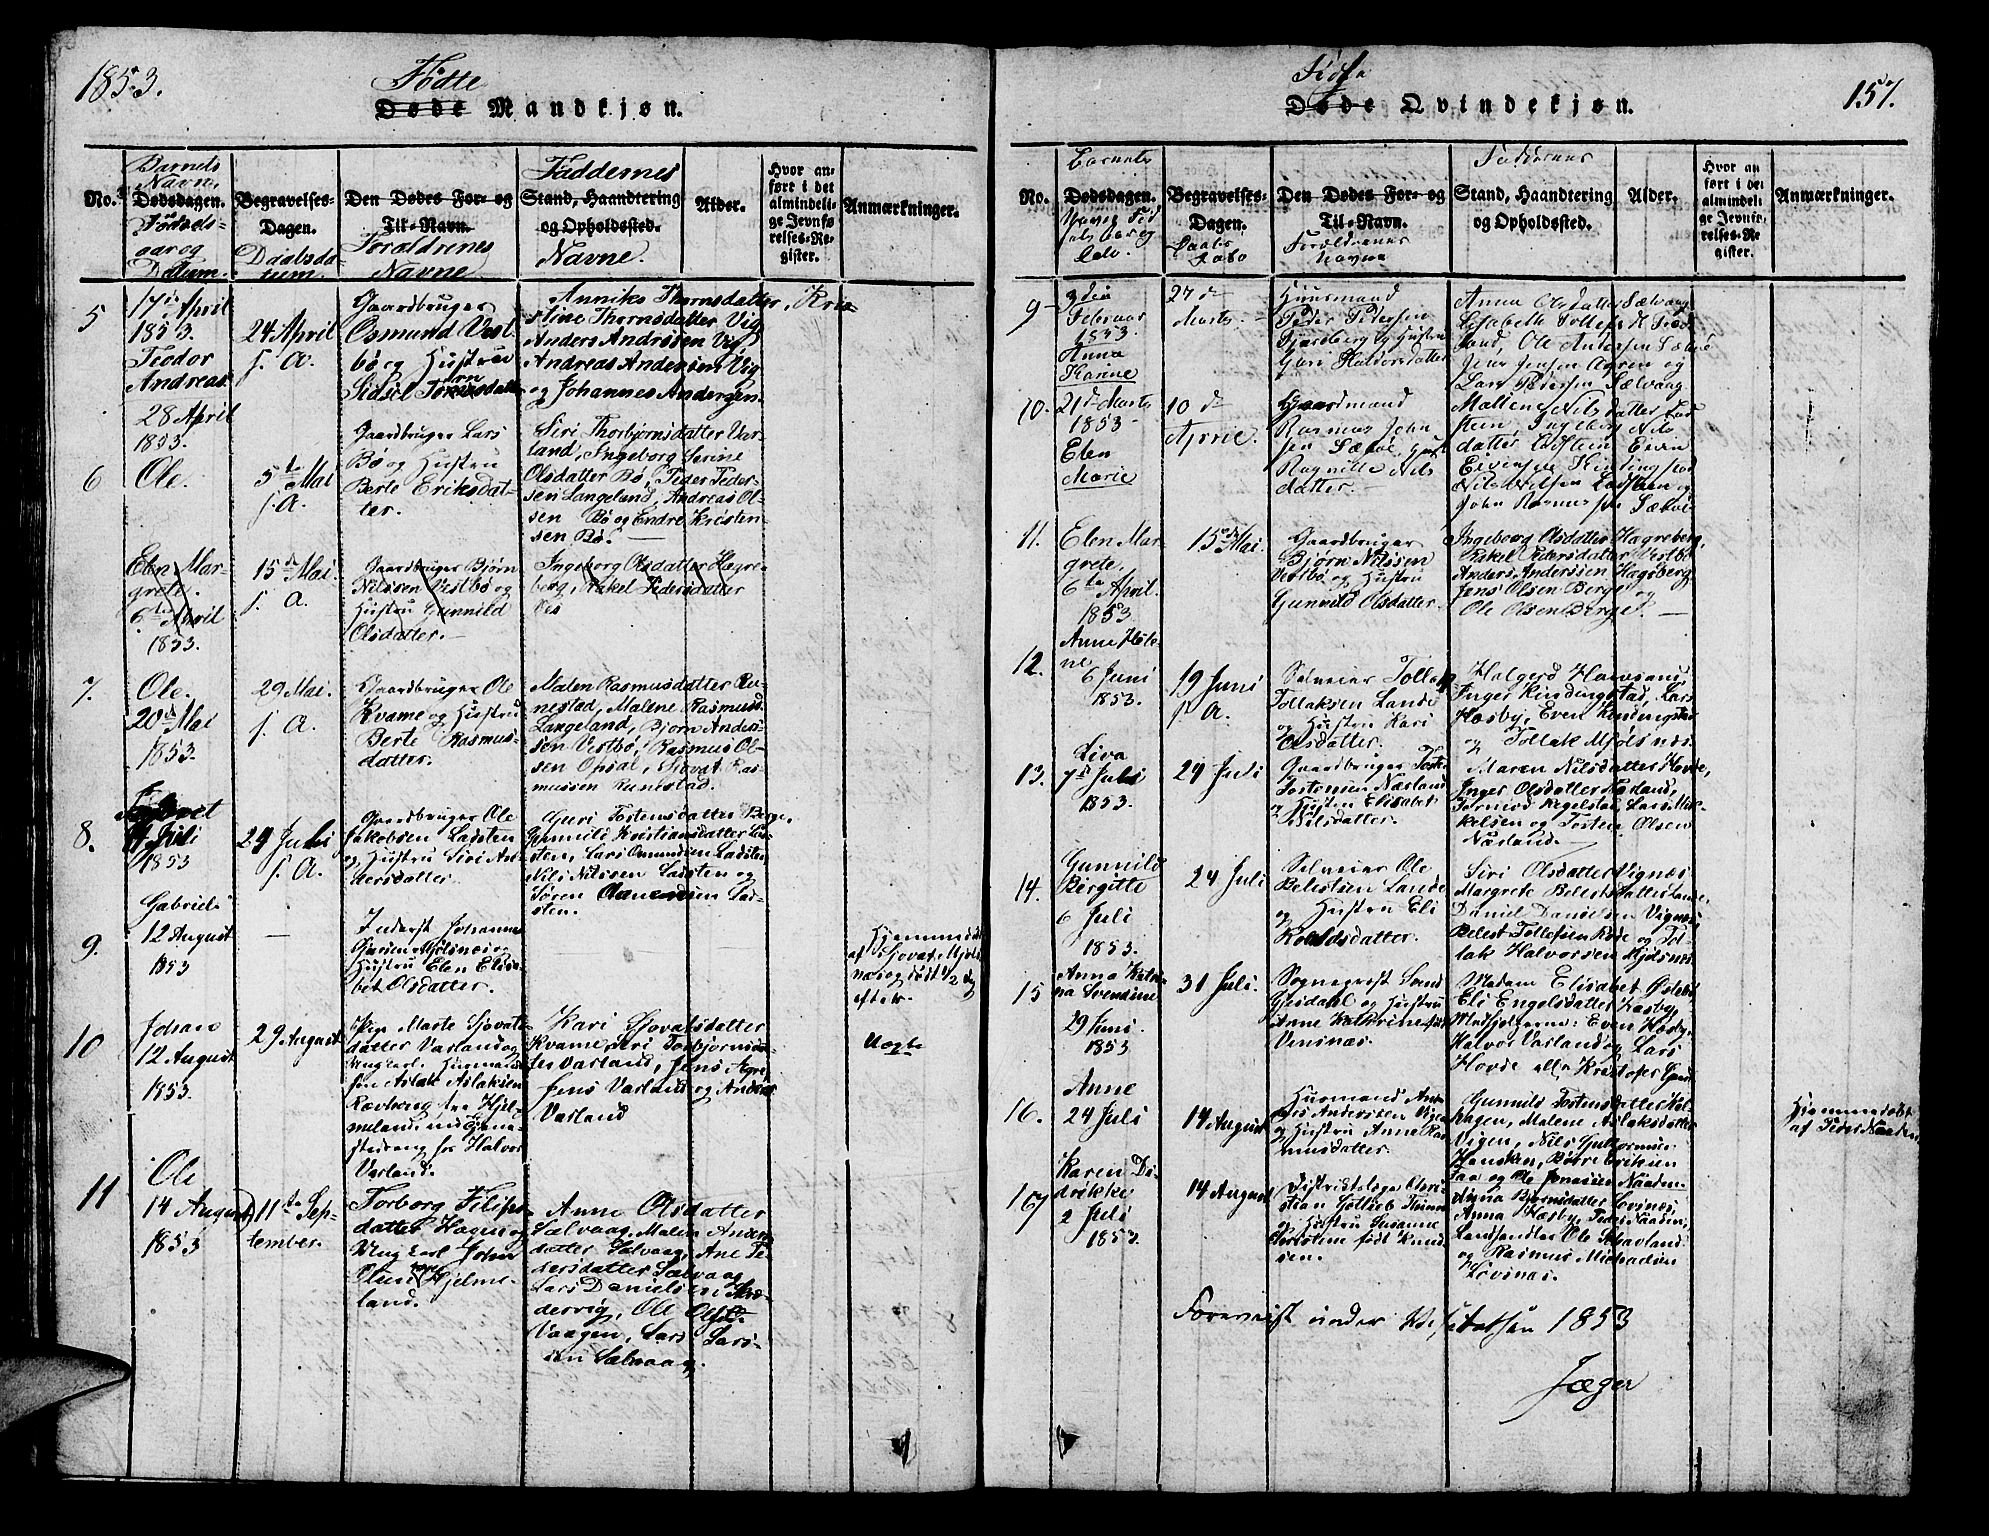 1853.
Fødte
Døde Mandkjøn.
No.
Barnets
Navn,
Dødsdagen.
Fødsels-
aar og
Datum.
Begravelses-
Dagen.
Daabsda-
tum.
Den Dødes For- og
Til-Navn.
Forældrenes
Navne
Faddernes
Stand, Haandtering
og Opholdssted.
Navne.
Alder.
Hvor an-
ført i det
almindeli-
ge Jevnfø-
relses-Re-
gister.
Anmærkninger.
5
17de April
1853.
Teodor
Andreas
24 April
s. A.
Gaardbruger
Osmund Vest
bø og Hustru
Sidsel
Anniks Thornsdatter, Kris-
stine Thornsdatter Vig
Anders Andrsen Vig
Andreas Andersen Vig
og Johannes Andersen.
6
28 April
1853.
Ole.
5te Mai
s. A.
Gaardbruger Lars
Bø og Hustru
Berte Eriksdat-
ter.
Siri Thorbjørnsdatter Var-
land, Ingeborg Serine
Olsdatter Bø, Peder Peder-
sen Langeland, Andreas Ol-
sen Bø og Endre Kristen-
sen Bø.
Elen Mar-
grete.
6te April
1853.
15de Mai
s. A.
Gaardbruger Bjørn
Nilssen Vestbø og
Hustru Gunnild
Olsdatter.
Ingeborg Olsdatter Hagre-
berg, Rakel Pedersdatter
Ves
7.
Ole.
20de Mai
1853.
29 Mai.
s. A.
Gaardbruger Ole
Kvame og Hustru
Berte Rasmus-
datter.
Malen Rasmusdatter Ru-
nestad, Malene Rasmusd.
Langeland, Bjørn Anders-
sen Vestbø, Rasmus Ol-
sen Opsal, Siovat Ras-
mussen Runestad.
8.
Juli
1853
24 Juli
s. A.
Gaardbruger Ole
Jakobsen Ladsten
og Hustru Siri An-
dersdatter.
Guri Tostensdatter Berge,
Gunnild Kristiansdatter Lad-
sten, Lars Osmundsen Ladsten
Nils Nilssen Ladsten og
Søren Ladsten.
9.
Gabriel
12 August
1853
—
Inderst Johannes
Mjølsnes og
Hustru Elen Elisa-
bet Olsdatter.
Hjemmedøbt
af Sjovat Mjøls-
nes og død 1/2 Dg
efter.
10
Johan
12 August
1853.
29 August
Pige Marte Sjovats-
datter Varland og
Ungkarl Huusmands-
søn Aslak Aslaksen
Ravneberg fra Hjel-
meland
Halvor
Varland.
Kari Sjovatsdatter
Kvame, Siri Torbjørnsdat-
ter Varland, Jens
Jens Varland og Andreas
Varland
Uægte
11
Ole
14 August
1853
11te Sep-
tember.
Torborg Filips-
datter Hagne og
Ungkarl John
Olsen Hjelme-
land.
Anne Olsdatter
Sælvaag, Malen Anders
datter Sælvaag, Ane Pe-
dersdatter Sælvaag
Lars Danielsen
dervig, Ole
Vaagen, Lars Lars-
sen Sælvaag.
157.
Fødte
Døde Qvindekjøn.
No.
Barnets
Dødsdagen.
Navn, Fød
sels aar og
Begravelses-
Dagen.
Daabs
Den Dødes For- og
Til-Navn.
Forældrenes
Navne
Faddernes
Stand, Haandtering
og Opholdssted.
Alder.
Hvor an
ført i det
almindeli-
ge Jevnfø-
relses-Re-
gister.
Anmærkninger.
9
den
Februar
1853
Anna
Karine
27 de
Marts
Huusmand
Peder Pedersen
Fjordberg og Hustru
Guri Haldorsdatter
Anna Olsdatter Sælvaag
Lisabeth
land Ole Andersen
Jens Jensen og
Lars Pedersen Sælvaag
10.
21de Marts
1853
Elen
Marie
10 de
Aprie.
Gaardmand
Rasmus John
sen Sæbø, Hust
Ragnille Nils
datter.
Maltene Nilsdatter Lad
steen, Ingeborg Nils
datter Ladsten Even
Eivensen Kindingstad
Nils Nilsen Ladsten og
John Rasmussen Sæbø
11.
Elen Mar-
grete,
6te April.
1853
15de Mai.
Gaardbruger
Bjørn Nilssen
Vestbø og Hustru
Gunnild Olsdatter.
Ingeborg Olsdatter Hagreberg,
Rakel Pedersdatter Vestbø
Anders Anderssen Hagsberg
Jens Olsen Berge og
Ole Olsen Berge.
12.
Anne Hele-
ne
6 Juni
1853.
19 Juni
s. A.
Selveier Tollak
Tollaksen Lande
og Hustru Kari
Olsdatter.
Halgerd
Inger Kindingstad, Lars
Hæsby, Even Kindingstad
og Tollak Mjølsnes.
13.
Liva
7de Juli
1853.
24 Juli
Gaardbruger Tosten
Tostensen Næsland
og Hustru Elisabet
Nilsdatter.
Maren Nilsdatter Hovde,
Inger Olsdatter Næsland,
Tormod Regelstad, Lars Mik-
kelsen og Tosten Olsen
Næsland.
14.
Gunnild
Birgitte
6 Juli
1853.
24 Juli
Selveier Ole
Belestsen Lande
og Hustru Eli
Roaldsdatter.
Siri Olsdatter Vignæs
Margrete Belestsdatter Lande,
Daniel Danielsen Vignæs
Belest Tollefsen Røde og Tol-
lak Halvorsen Mjølsnes.
15
Anna Katri-
na Svendine
29 Juni.
1853
31 Juli.
Sogneprest Svend
Gjesdahl og Hustru
Anne Kathrine født
Vensnæs.
Madam Elisabet Østebø
Eli Engelsdatter Hæsby,
Medhjelperne: Even Hæsby,
Halvor Varland og Lars
Hovde
16.
Anne
24 Juli
14 August
Huusmand An-
ders Anderssen Vigen
og Hustru Anne Ras-
musdatter.
Gunnild Tostensdatter
Hagen, Malene Aslaksdatter
Vigen, Nils Guttormsen
Hansken, Børre Eriksen
Taa og Ole Jonassen Naaden.
Hjemmedøbt
af Peder Naaden
167
Karen Di-
drikke
2 Juli
1853.
14 August
Distriktslæge Chris-
tian Gottlieb
og Hustru Susanne
Christine født Knud-
sen.
Anna Bjørnsdatter Løvsnæs,
Anna Hæsby, Peder Naaden,
Landhandler Ole Skavland
og Rasmus Michaelsen
Løvsnæs.
Foreviist under Visitatsen 1853
Jæger